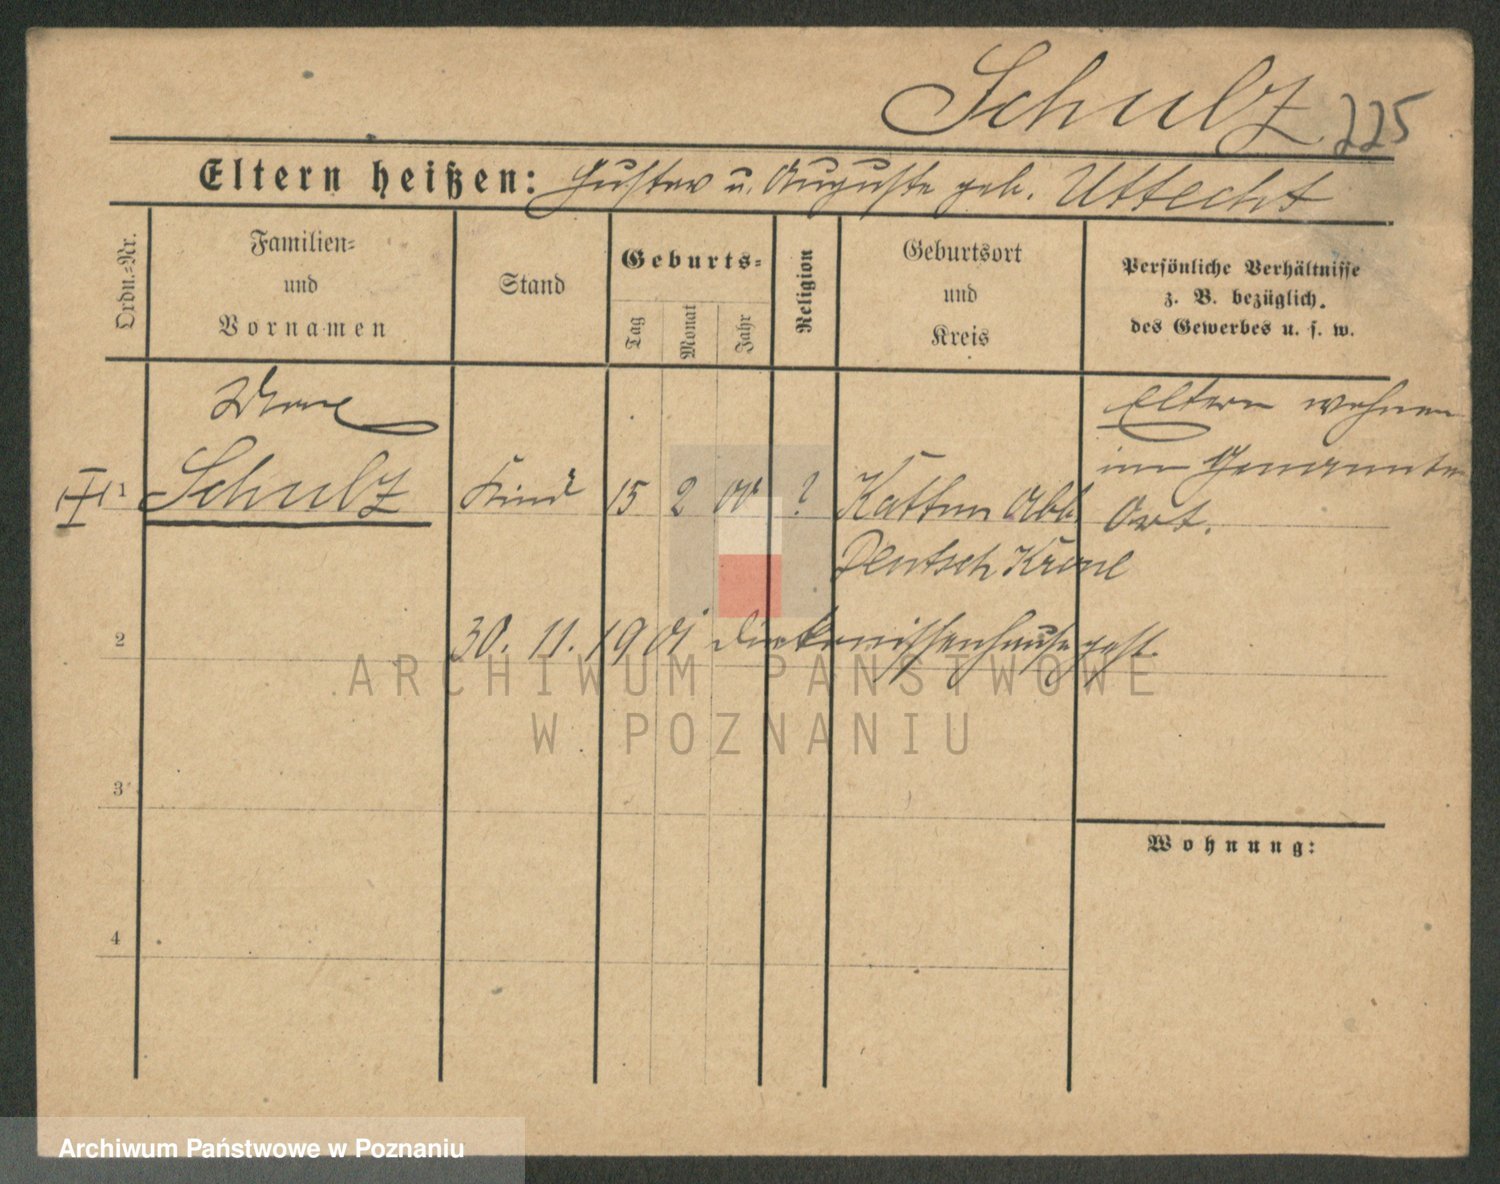 Schulz
225
Eltern heißen: Gustav u. Auguste geb. Uttecht
Ordn.=Nr.
Familien=
und
Vornamen
Stand
Geburts=
Tag
Monat
Jahr
Religion
Geburtsort
und
Kreis
Persönliche Verhältnisse
z. B. bezüglich
des Gewerbes u. s. w.
1
Schulz
Kind
15
2
00
?
Kattun Abb.
Deutsch Krone
Eltern wohnen
im Genannten
Ort.
2
30. 11. 1901 Diakonissenhause gest.
3
4
Wohnung:
ARCHIWUM PAŃSTWOWE
W POZNANIU
Archiwum Państwowe w Poznaniu